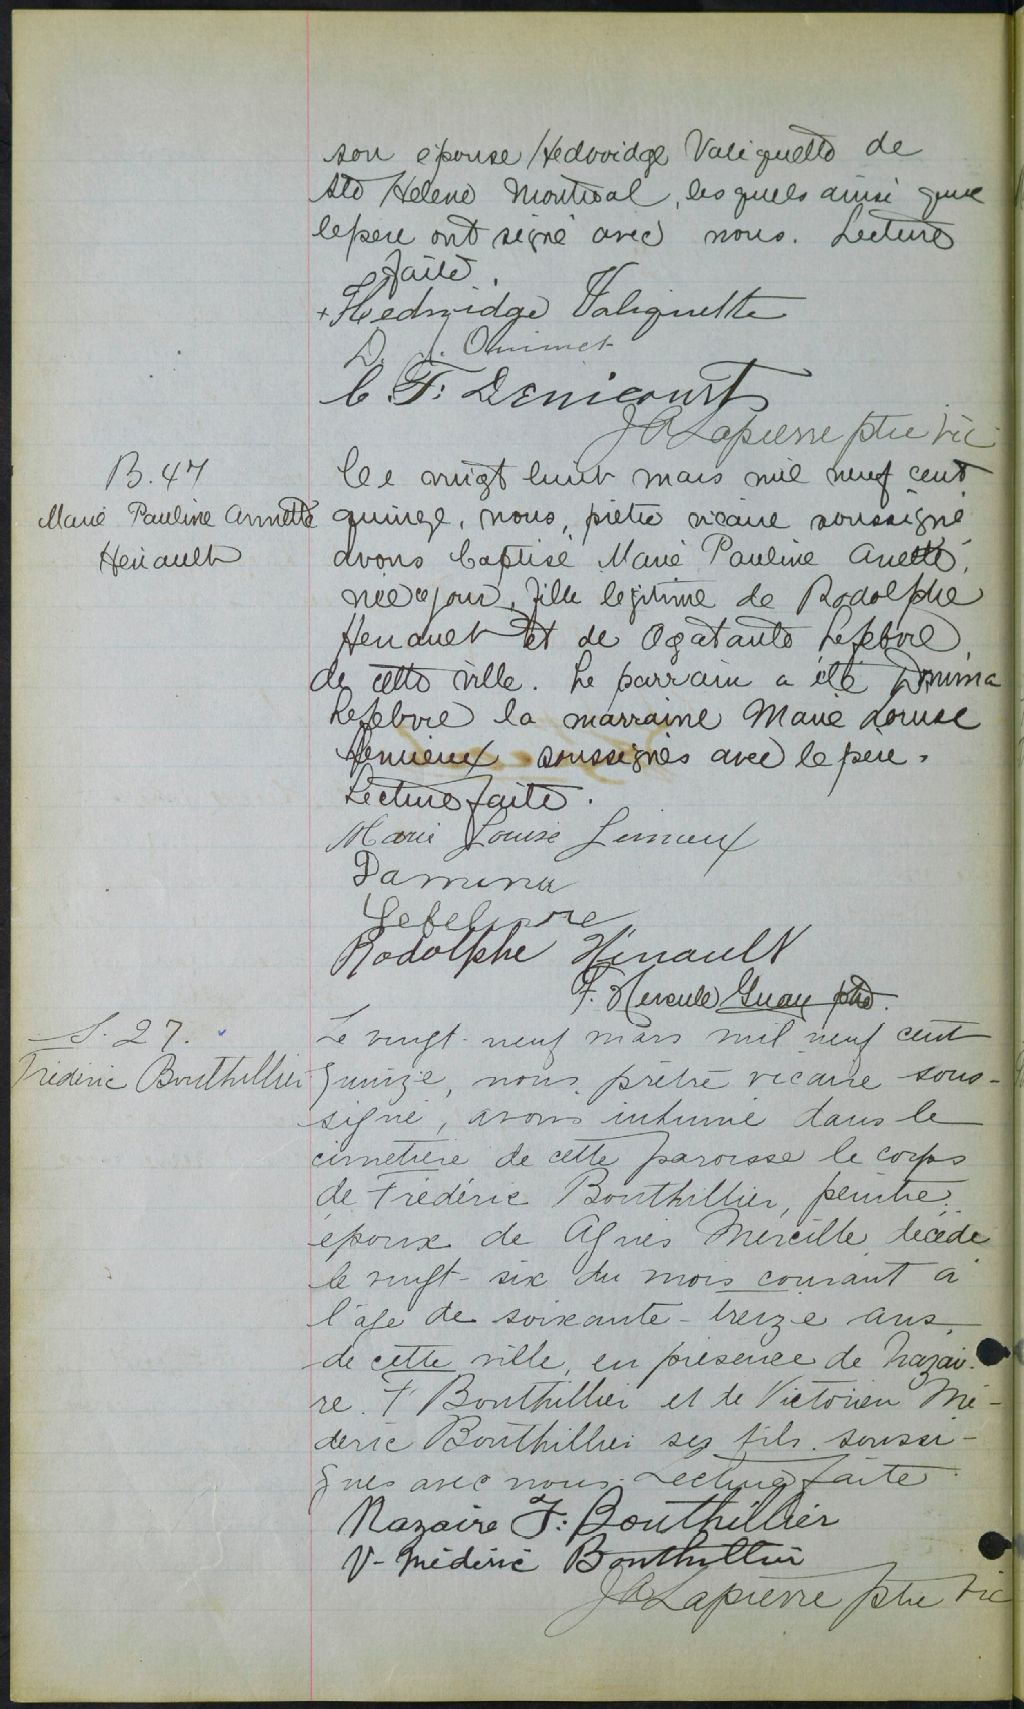 son épouse Hedwidge Valiquette de
Ste Helene Montreal, lesquels ainsi que
le pere ont signé avec nous. Lecture
faite.
+ Hedwidge Valiquette
D. J. Ouimet
C. F. Denicourt
J A Lapierre ptre vic
B. 47
Marie Pauline Annette
Henault
Ce vingt huit mars mil neuf cent
quinze, nous, prêtre vicaire soussigné
avons baptisé Marie Pauline Anette,
née ce jour, fille legitime de Rodolphe
Henault et de Lefebvre
de cette ville. Le parrain a été Damina
Lefebvre la marraine Marie Louise
Lemieux soussignés avec le père.
Lecture faite.
Marie Louise Lemieux
Damina
Lefebvre
Rodolphe Hénault
F. Hercule Guay ptre.
S. 27.
Frédéric Bouthillier
Le vingt-neuf mars mil neuf cent
quinze, nous prêtre vicaire sous-
signé, avons inhumé dans le
cimetière de cette paroisse le corps
de Frédéric Bouthillier, peintre
époux de Agnès Mireille décédé
le vingt-six du mois courant à
l'âge de soixante-treize ans
de cette ville, en présence de Nazai-
re. F Bouthillier et de Victorien Mé-
déric Bouthillier ses fils soussi-
gnés avec nous. Lecture faite.
Nazaire F: Bouthillier
V- Médéric Bouthillier
J A Lapierre ptre vic